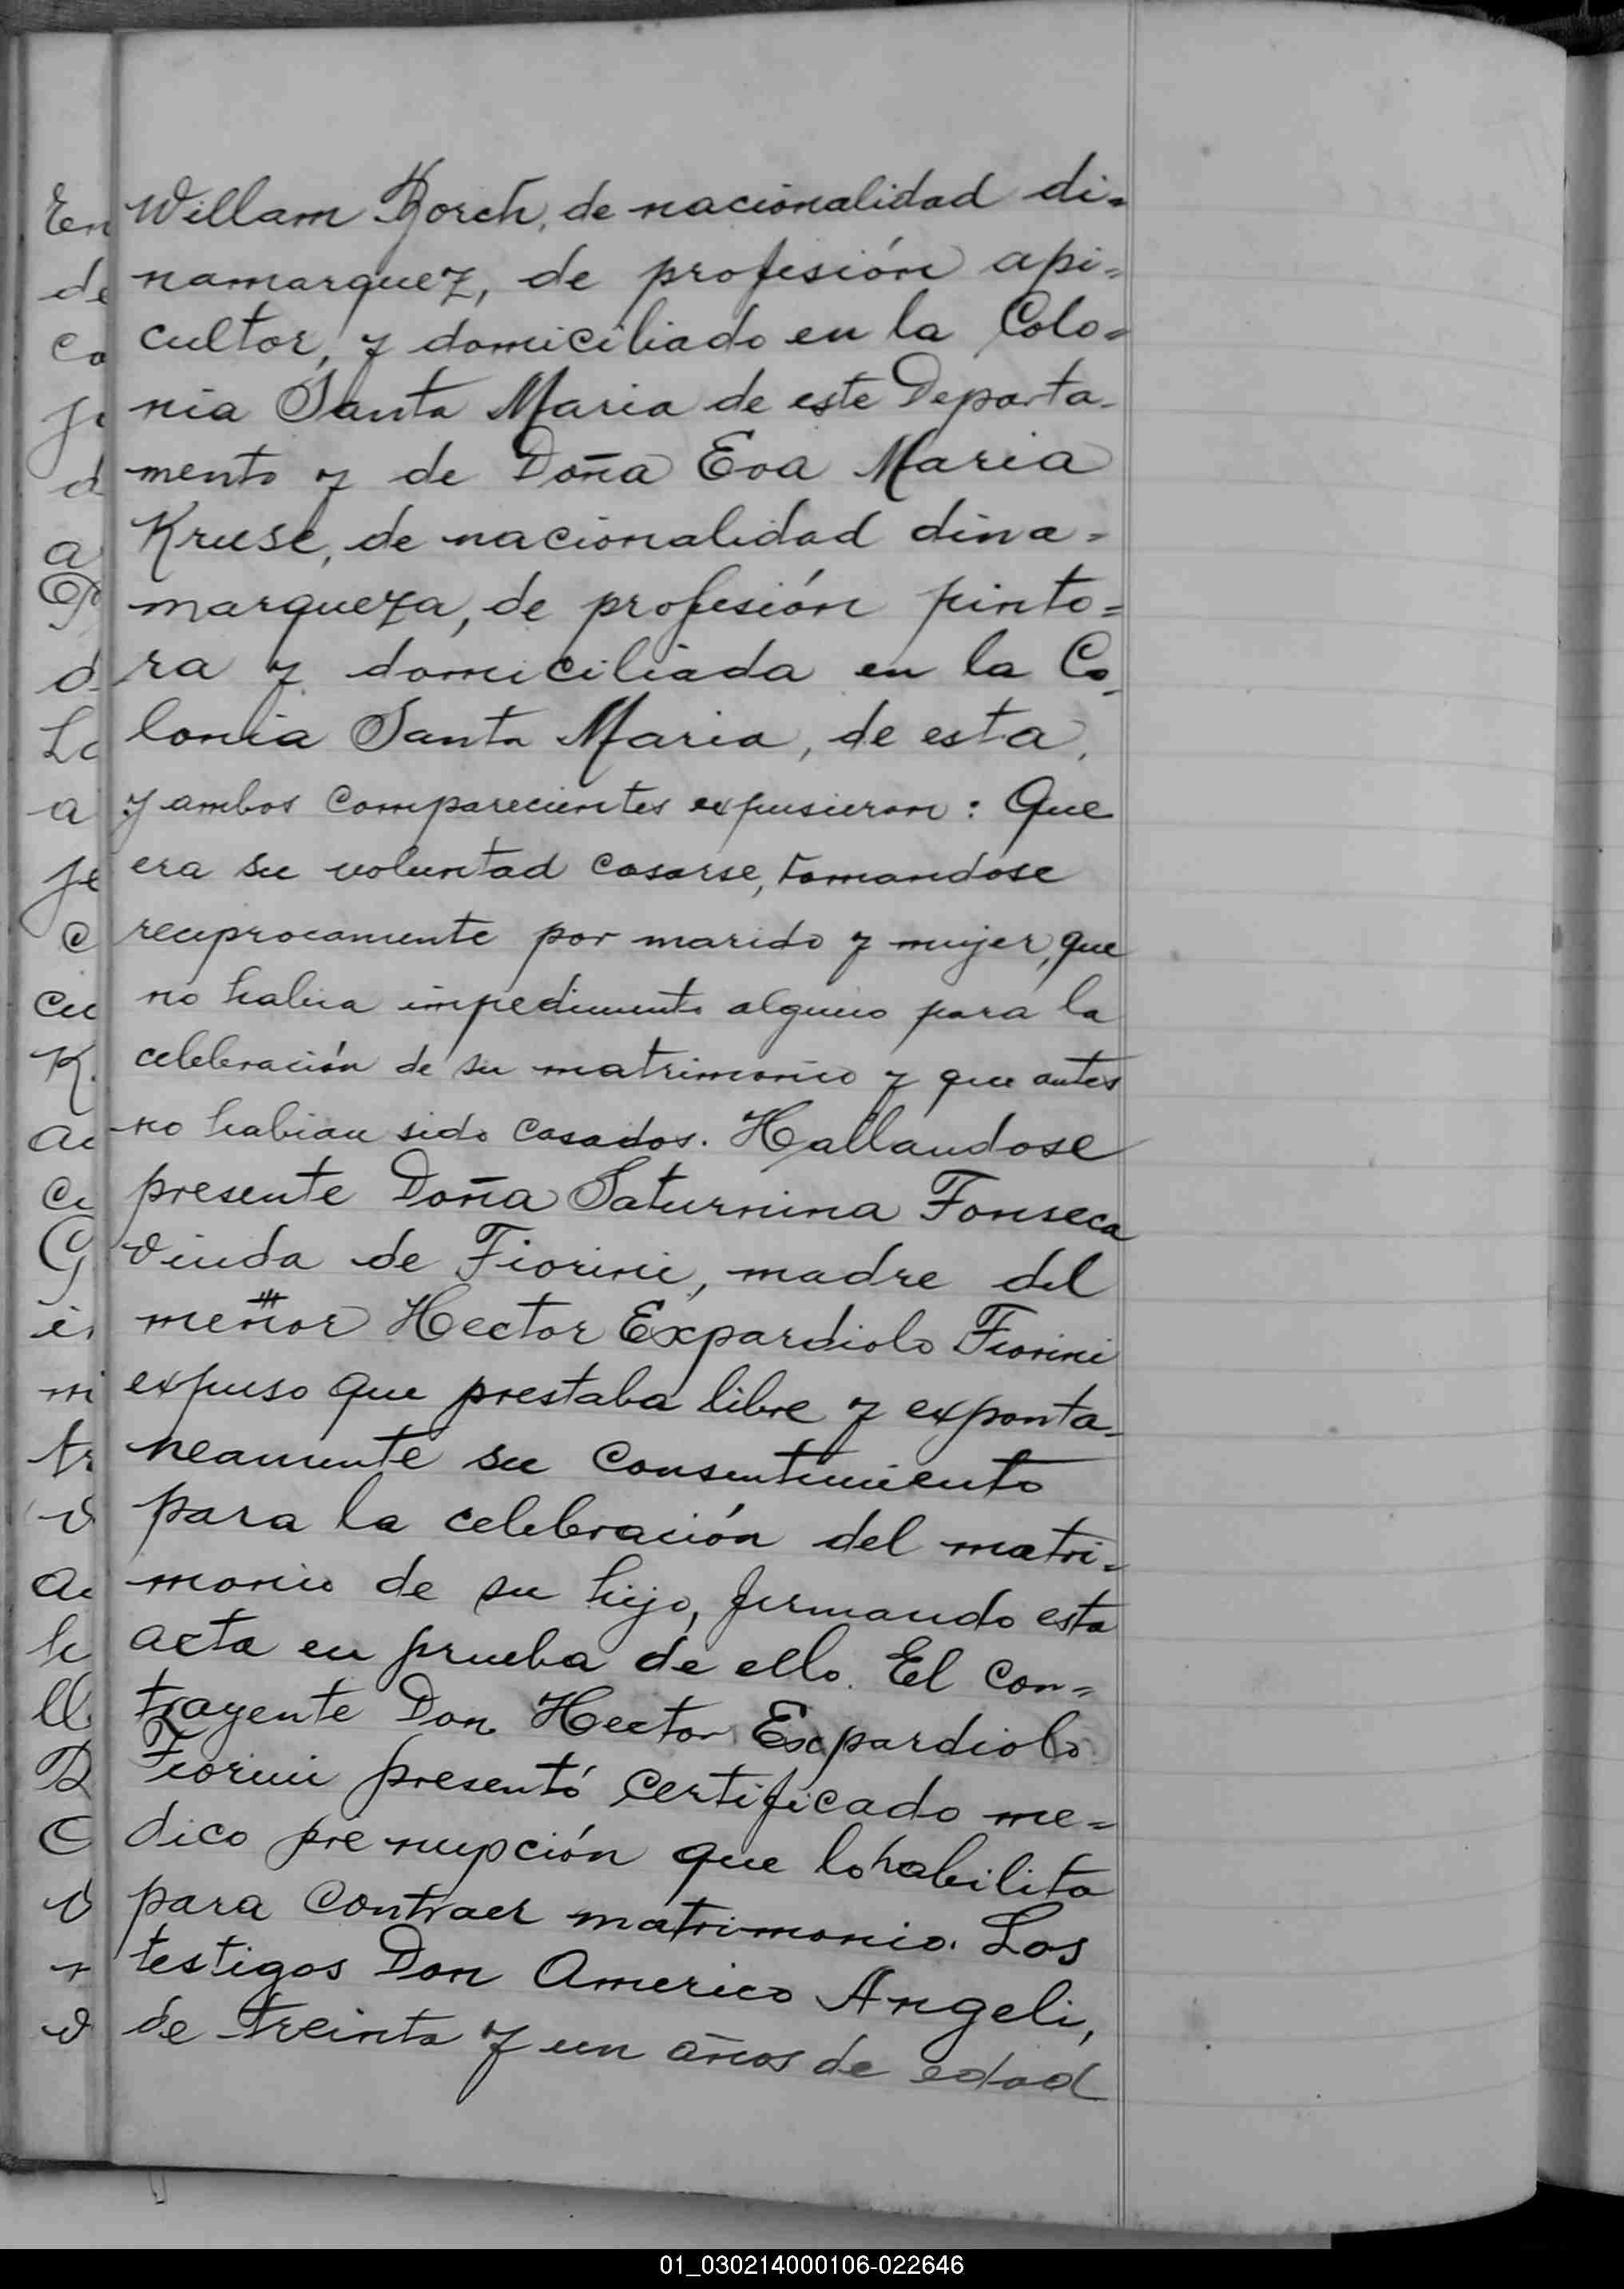 Willam Borch, de nacionalidad di=
namarquez, de profesión api=
cultor, y domiciliado en la Colo=
nia Santa Maria de este Departa-
mento y de Doña Eva Maria
Kruse, de nacionalidad dina=
marqueza, de profesión pinto=
ra y domiciliada en la Co-
lonia Santa Maria, de esta,
y ambos comparecientes expusieron: Que
era su voluntad casarse, tomandose
reciprocamente por marido y mujer, que
no habia impedimento alguno para la
celebración de su matrimonio y que antes
no habian sido casados. Hallandose
presente Doña Saturnina Fonseca
viuda de Fiorini, madre del
menor Hector Expardiolo Fiorini
expuso que prestaba libre y exponta-
neamente su consentimiento
para la celebración del matri=
monio de su hijo, firmando esta
acta en prueba de ello. El con=
trayente Don Hector Expardiolo
Fiorini presentó certificado me=
dico pre nupción que lo habilita
para contraer matrimonio. Los
testigos Don Americo Angeli,
de treinta y un años de edad
01_030214000106-022646